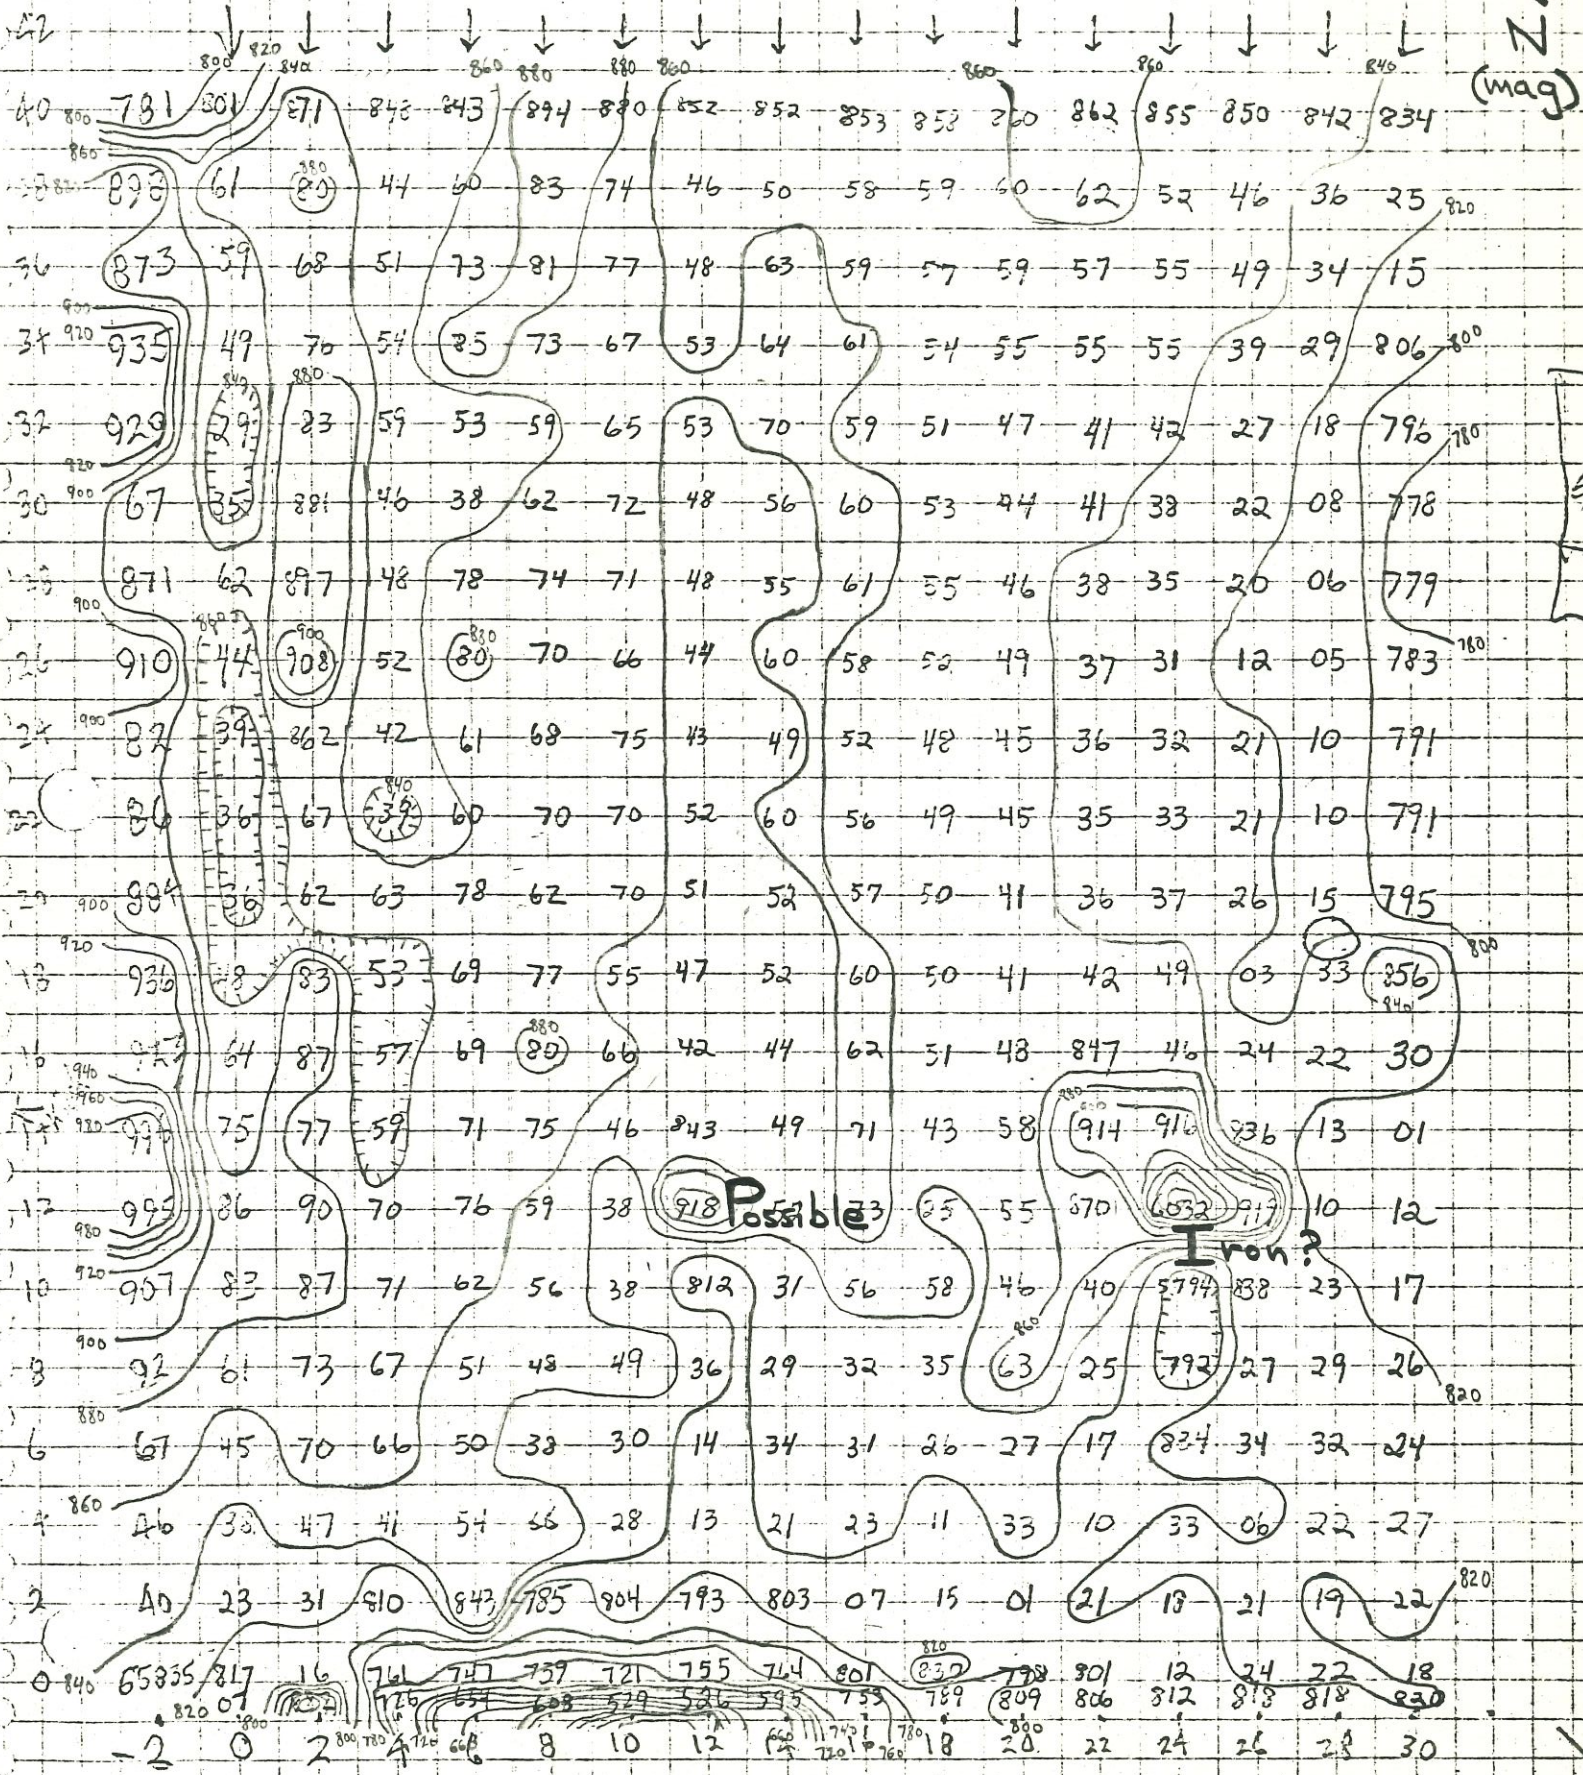 42
800 820 840 860 880 880 860 860 860 840
N
(mag)
40 800 781 801 871 848 843 894 880 852 852 853 853 860 862 855 850 842 834
860
880
61 80 44 60 83 74 46 50 58 59 60 62 52 46 36 25 820
36 873 59 68 51 73 81 77 48 63 59 57 59 57 55 49 34 15
900
34 920 935 49 70 54 85 73 67 53 64 61 54 55 55 55 39 29 806 800
840 880
32 929 29 83 59 53 59 65 53 70 59 51 47 41 42 27 18 796 780
920
30 900 67 35 881 46 38 62 72 48 56 60 53 44 41 38 22 08 778
871 62 897 48 78 74 71 48 55 61 55 46 38 35 20 06 779
900 860 900 880
26 910 44 908 52 80 70 66 44 60 58 52 49 37 31 12 05 783 780
900
24 82 39 862 42 61 68 75 43 49 52 48 45 36 32 21 10 791
840
86 36 67 39 60 70 70 52 60 56 49 45 35 33 21 10 791
900 36 62 63 78 62 70 51 52 57 50 41 36 37 26 15 795
920 800
18 936 48 83 53 69 77 55 47 52 60 50 41 42 49 03 33 856
840
880
16 64 87 57 69 80 66 42 44 62 51 43 847 46 24 22 30
940
960 880
980 75 77 59 71 75 46 843 49 71 43 58 914 916 936 13 01
12 995 86 90 70 76 59 38 918 Possible 73 25 55 870 6032 919 10 12
980
Iron?
920
10 907 83 87 71 62 56 38 812 31 56 58 46 40 5794 838 23 17
900 860
8 92 61 73 67 51 48 49 36 29 32 35 63 25 792 27 29 26
820
880
6 67 45 70 66 50 38 30 14 34 31 26 27 17 834 34 32 24
860
4 46 38 47 41 54 66 28 13 21 23 11 33 10 33 06 22 27
2 40 23 31 810 843 785 804 793 803 07 15 01 21 18 21 19 22 820
820
0 840 65835 817 16 761 747 739 721 755 764 801 832 798 801 12 24 22 18
820 07 726 654 608 529 526 595 753 789 809 806 812 818 818 820
800 800 780 720 660 660 740 720 760 780 800
-2 0 2 4 6 8 10 12 18 20 22 24 26 28 30